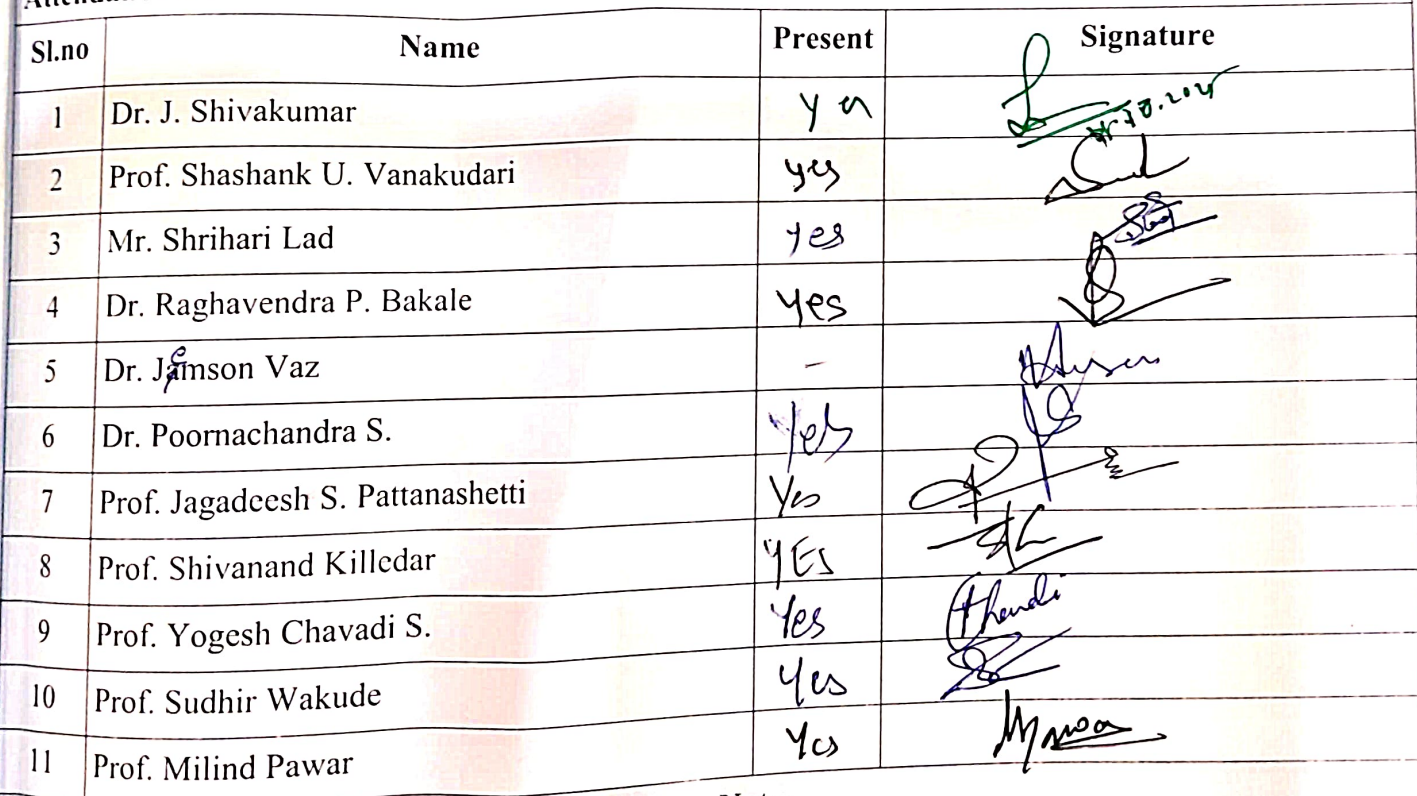 Sl.no Name Present Signature
1 Dr. J. Shivakumar yes
2 Prof. Shashank U. Vanakudari yes
3 Mr. Shrihari Lad yes
4 Dr. Raghavendra P. Bakale yes
5 Dr. Jemson Vaz -
6 Dr. Poornachandra S. Yes
7 Prof. Jagadeesh S. Pattanashetti Yes
8 Prof. Shivanand Killedar YES
9 Prof. Yogesh Chavadi S. Yes
10 Prof. Sudhir Wakude Yes
11 Prof. Milind Pawar Yes